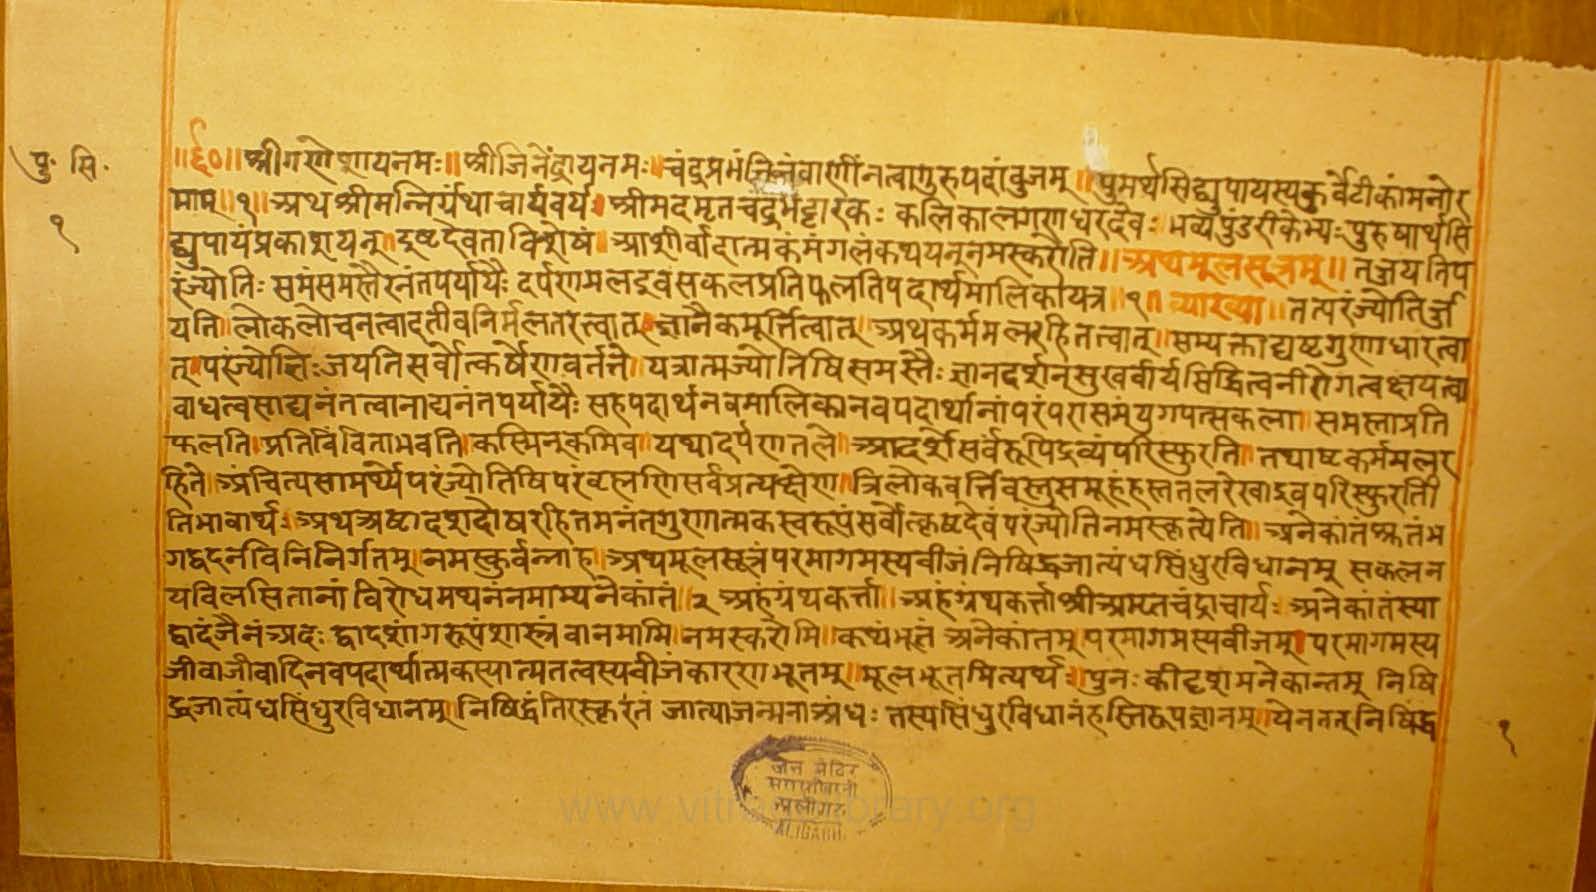 पु. सि.
१
॥६०॥श्रीगणेशायनमः॥श्रीजिनेंद्रायनमः॥चंद्रप्रभंजिनंवाणींनत्वागुरुपदांवुजम्॥पुमर्थसिद्ध्युपायस्यकुर्वेटीकांमनोर
माम्॥१॥अथश्रीमन्निर्ग्रंथाचार्यवर्य॥श्रीमदमृतचंद्रभट्टारकः कलिकालगणधरदेवः॥भव्यपुंडरीकेभ्यः पुरुषार्थसि
द्ध्युपायंप्रकाशयन्॥इष्टदेवताविशेषं॥आशीर्वादात्मकंमंगलंकथयन्नमस्करोति॥अथमूलसूत्रम्॥तज्जयतिप
रंज्योतिः समंसमस्तैरनंतपर्यायैः दर्पणमलइवसकलप्रतिफलतिपदार्थमालिकायत्र॥१॥व्याख्या॥तत्परंज्योतिर्ज्ज
यति॥लोकलोचनत्वादतीवनिर्मलतरत्वात्॥ज्ञानैकमूर्त्तित्वात्॥अथकर्ममलरहितत्वात्॥सम्यक्ताद्यष्टगुणधारत्वा
त्॥परंज्योतिः जयतिसर्वोत्कर्षेणवर्त्तते॥यत्रात्मज्योतिषिसमस्तैः ज्ञानदर्शनसुखवीर्यसिद्धित्वनीरोगत्वक्षयत्वा
वाधत्वसाद्यनंतत्वानाद्यनंतपर्यायैः सहपदार्थनवमालिकानवपदार्थानांपरंपरासमंयुगपत्सकला॥समस्ताप्रति
फलति॥प्रतिविंविताभवति॥कस्मिन्कमिव॥यथादर्पणतले॥आदर्शेसर्वरूपिद्रव्यंपरिस्फुरति॥तथाष्टकर्ममलर
हिते॥अंचित्यसामर्थ्येपरंज्योतिषिपरंव्रह्मणिसर्वंप्रत्यक्षेण॥त्रिलोकवर्त्तिवस्तुसमूहंहस्ततलरेखाइवपरिस्फुरती
तिभावार्थः॥अथअष्टादशदोषरहितमनंतगुणात्मकस्वरूपंसर्वोत्कृष्टदेवंपरंज्योतिनमस्कृत्येति॥अनेकांतमतंभ
गद्वदनविनिनिर्गतम्॥नमस्कुर्वन्नाह॥अथमूलसूत्रंपरमागमस्यवीजंनिषिद्धजात्यंधसिंधुरविधानम् सकलन
यविलसितानांविरोधमथनंनमाम्यनैकांतं॥२॥अहंग्रंथकर्त्ता॥अहंग्रंथकर्त्ताश्रीअमृतचंद्राचार्यः॥अनेकांतंस्या
द्वादंजैनंअदः द्वादशांगरूपंशास्त्रंवानमामि॥नमस्करोमि॥कथंभूतंअनेकांतम्॥परमागमस्यवीजम्॥परमागमस्य
जीवाजीवादिनवपदार्थात्मकस्यात्मतत्वस्यवीजंकारणभूतम्॥मूलभूतमित्यर्थः॥पुनः कीदृशमनेकान्तम् निषि
द्धजात्यंधसिंधुरविधानम्॥निषिद्धंतिरस्कृतंजात्याजन्मनाअंधः तस्यसिंधुरविधानंहस्तिरूपज्ञानम्॥येनतत्निषिद्ध
१
जैन मंदिर
अलीगढ
ALIGARH.
www.vitragvani library.org